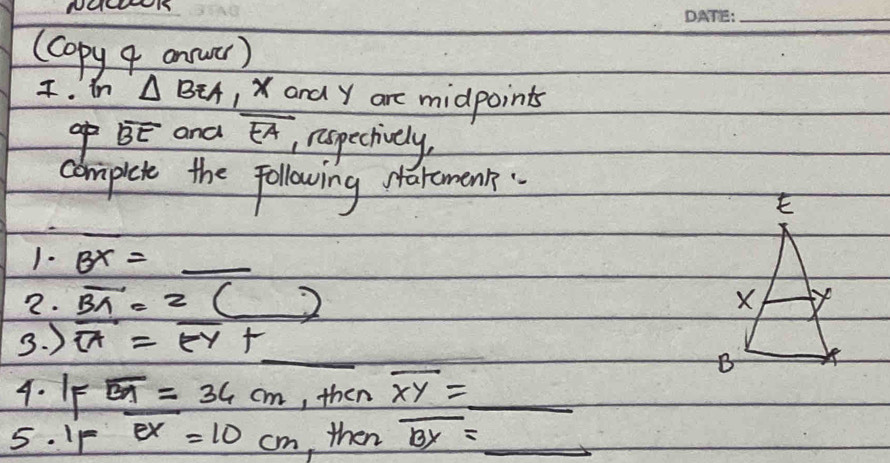 DATE:
(Copy & answer)
I. In Δ BEA, X and Y are midpoints
of BE and EA, respectively,
Complete the following statements:
1. BX = ___
2. BA = 2 (___)
3.) EA = EY + ___
4. If BA = 36 cm, then XY = ___
5. If EX = 10 cm, then BX = ___
E
X Y
B A